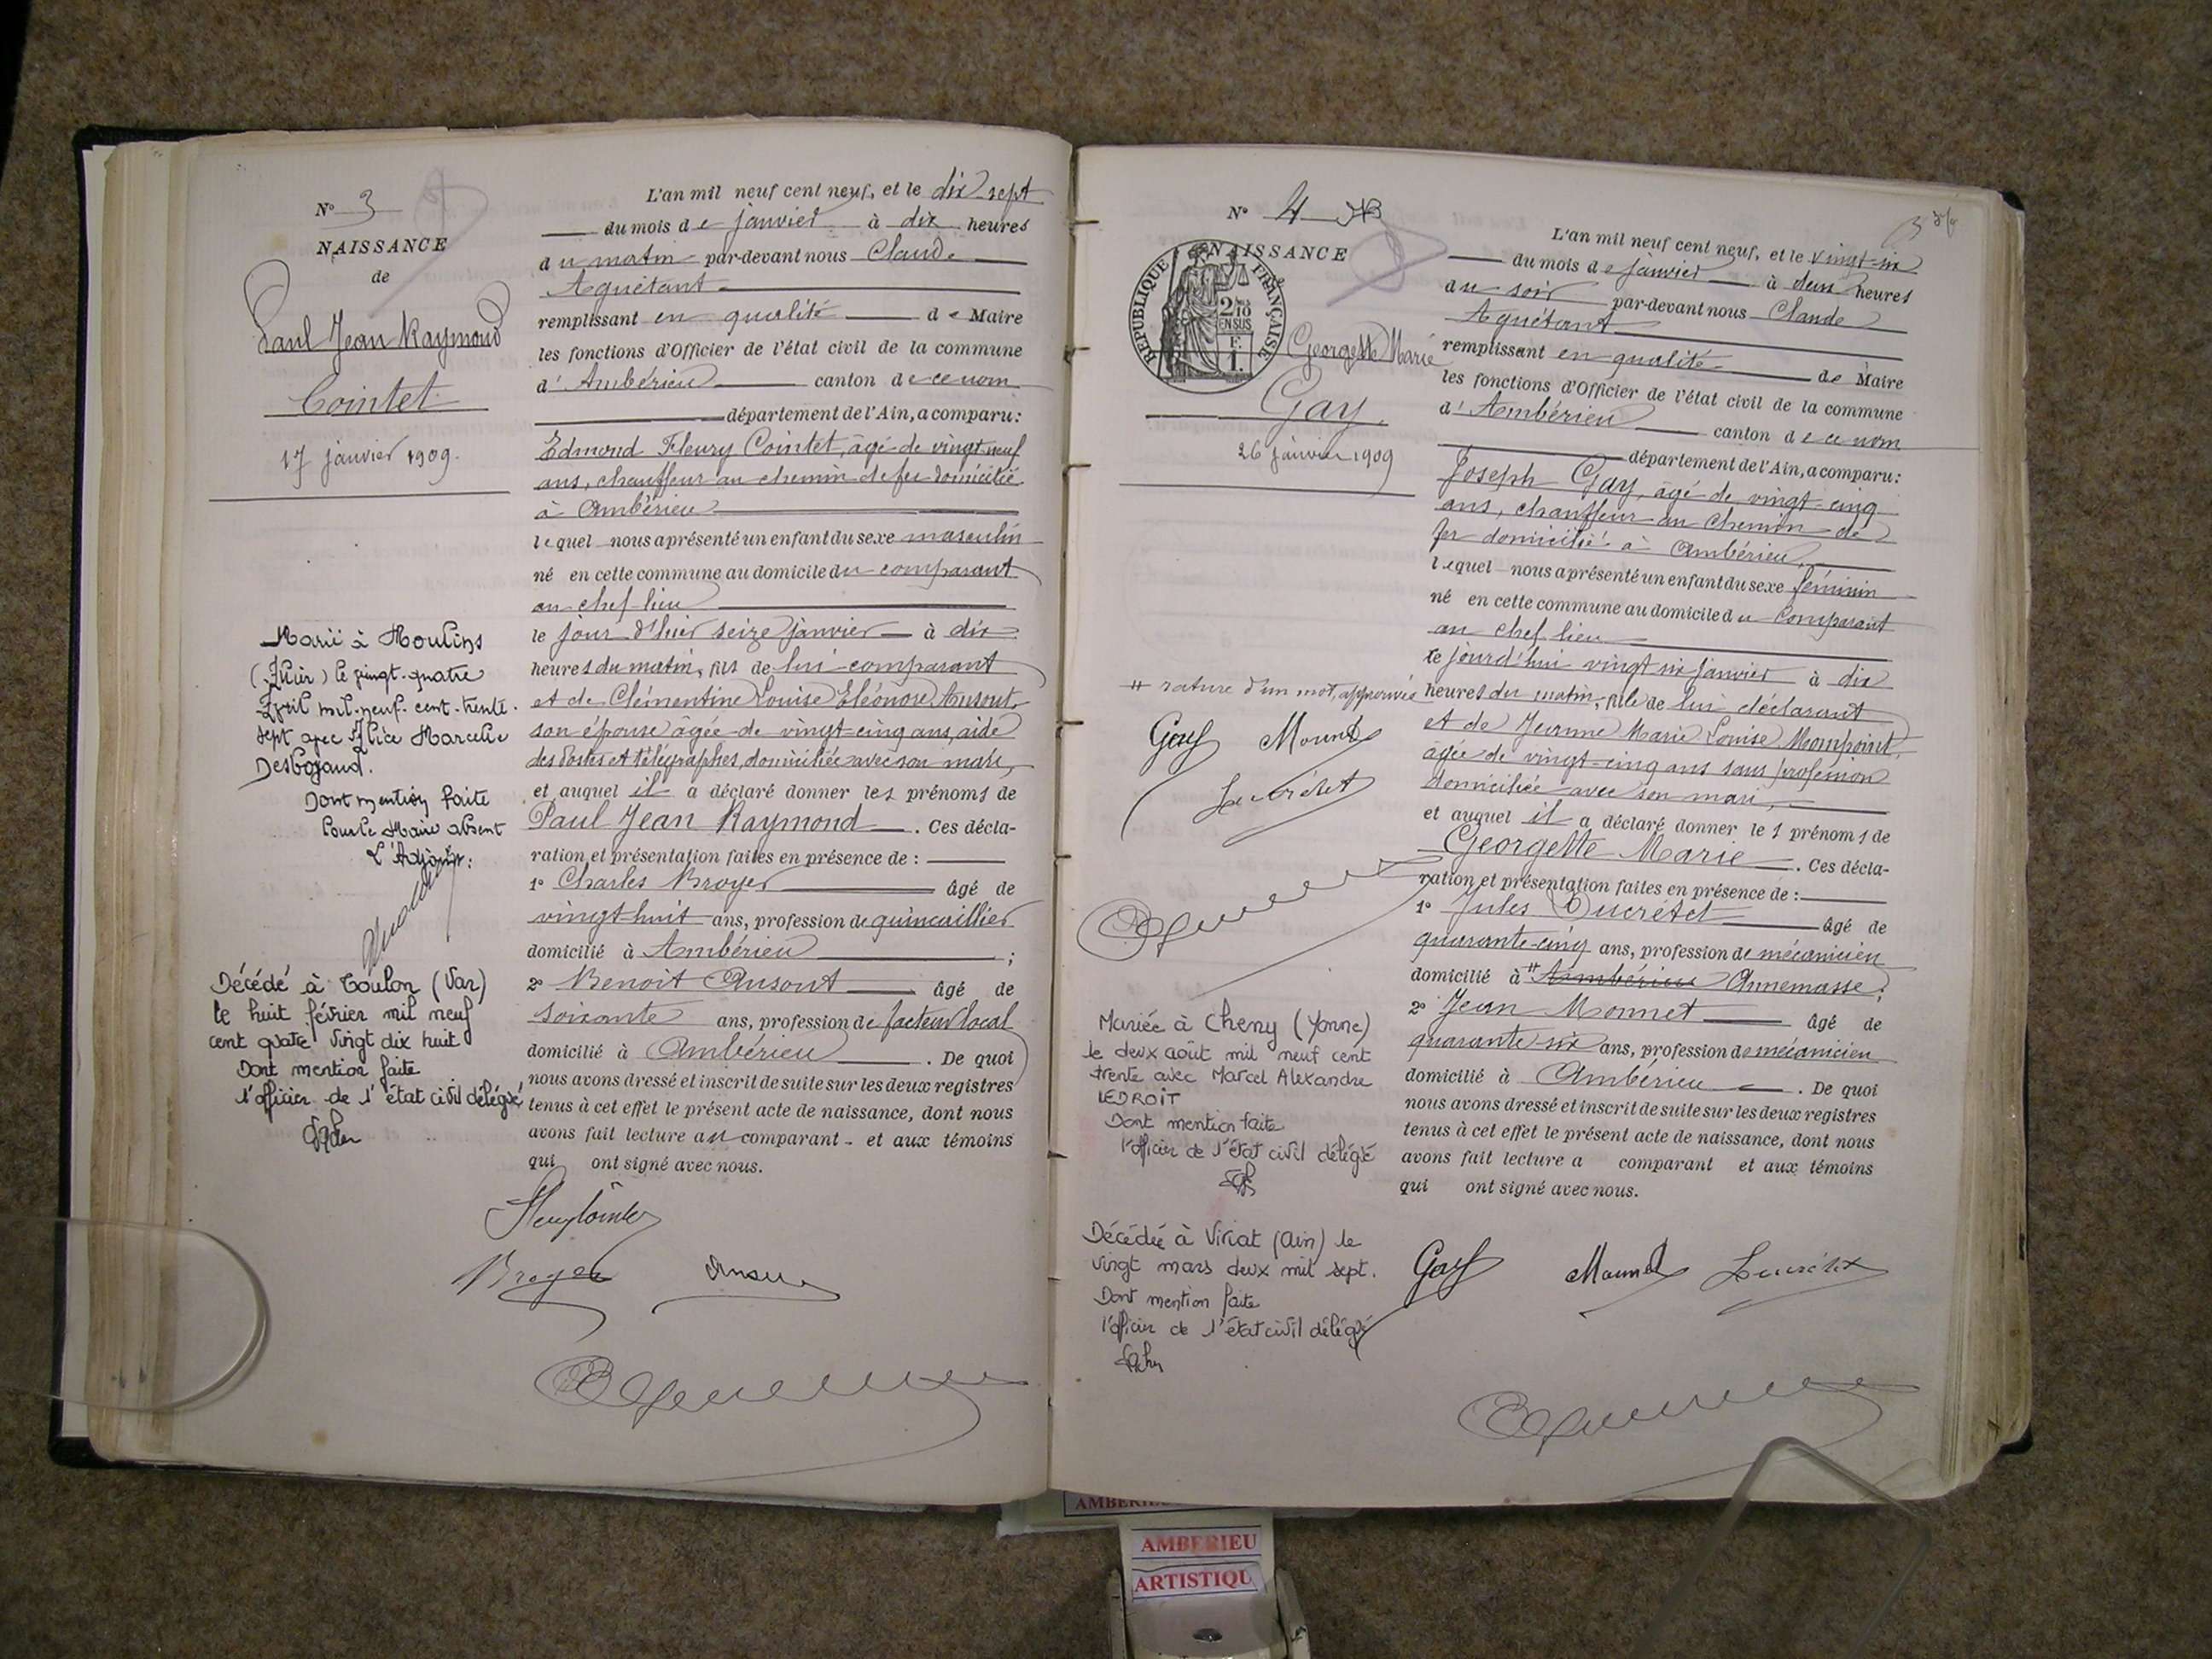 N° 3
NAISSANCE
de
Paul Jean Raymond
Cointet
17 janvier 1909.
Marié à Moulins
(Allier) le vingt-quatre
Avril mil-neuf-cent-trente-
sept avec Alice Marcelle
Desbojaud.
Dont mention faite
Pour le Maire absent
L'Adjoint:
Décédé à Toulon (Var)
le huit février mil neuf
cent quatre vingt dix huit
Dont mention faite
l'officier de l'état civil délégué
L'an mil neuf cent neuf, et le dix-sept
du mois de janvier à dix heures
du matin par-devant nous Claude
Aguétant
remplissant en qualité de Maire
les fonctions d'Officier de l'état civil de la commune
d'Ambérieu canton de ce nom
département de l'Ain, a comparu:
Edmond Fleury Cointet, âgé de vingt-neuf
ans, chauffeur au chemin de fer domicilié
à Ambérieu
lequel nous a présenté un enfant du sexe masculin
né en cette commune au domicile du comparant
au chef-lieu
le jour d'hier seize janvier à dix
heures du matin, fils de lui comparant
et de Clémentine Louise Eléonore Ansout
son épouse âgée de vingt-cinq ans, aide
des Postes et télégraphes, domiciliée avec son mari,
et auquel il a déclaré donner les prénoms de
Paul Jean Raymond . Ces décla-
ration et présentation faites en présence de :
1° Charles Broyer âgé de
vingt-huit ans, profession de quincaillier
domicilié à Ambérieu ;
2° Benoit Ansout âgé de
soixante ans, profession de facteur local
domicilié à Ambérieu . De quoi
nous avons dressé et inscrit de suite sur les deux registres
tenus à cet effet le présent acte de naissance, dont nous
avons fait lecture au comparant et aux témoins
qui ont signé avec nous.
Fleury Cointet
Broyer Ansout
N° 4
NAISSANCE
REPUBLIQUE FRANÇAISE
2/10
EN SUS
F.
1.
Georgette Marie
Gay.
26 janvier 1909
# rature d'un mot, approuvée
Gay Monnet
Ducrétet
Mariée à Cheny (Yonne)
le deux août mil neuf cent
trente avec Marcel Alexandre
LEDROIT
Dont mention faite
l'officier de l'état civil délégué
Décédée à Viriat (Ain) le
vingt mars deux mil sept.
Dont mention faite
l'officier de l'état civil délégué
L'an mil neuf cent neuf, et le vingt-six
du mois de janvier à deux heures
du soir par-devant nous Claude
Aguétant
remplissant en qualité de Maire
les fonctions d'Officier de l'état civil de la commune
d'Ambérieu canton de ce nom
département de l'Ain, a comparu:
Joseph Gay, âgé de vingt-cinq
ans, chauffeur au chemin de
fer domicilié à Ambérieu,
lequel nous a présenté un enfant du sexe féminin
né en cette commune au domicile du comparant
au chef lieu
le jourd'hui vingt six janvier à dix
heures du matin, fille de lui déclarant
et de Jeanne Marie Louise Mompoint,
agée de vingt-cinq ans sans profession
domiciliée avec son mari,
et auquel il a déclaré donner les prénoms de
Georgette Marie . Ces décla-
ration et présentation faites en présence de :
1° Jules Ducrétet âgé de
quarante-cinq ans, profession de mécanicien
domicilié à # Ambérieu Annemasse ;
2° Jean Monnet âgé de
quarante-six ans, profession de mécanicien
domicilié à Ambérieu . De quoi
nous avons dressé et inscrit de suite sur les deux registres
tenus à cet effet le présent acte de naissance, dont nous
avons fait lecture a comparant et aux témoins
qui ont signé avec nous.
Gay Monnet Ducrétet
AMBERIEU
ARTISTIQU